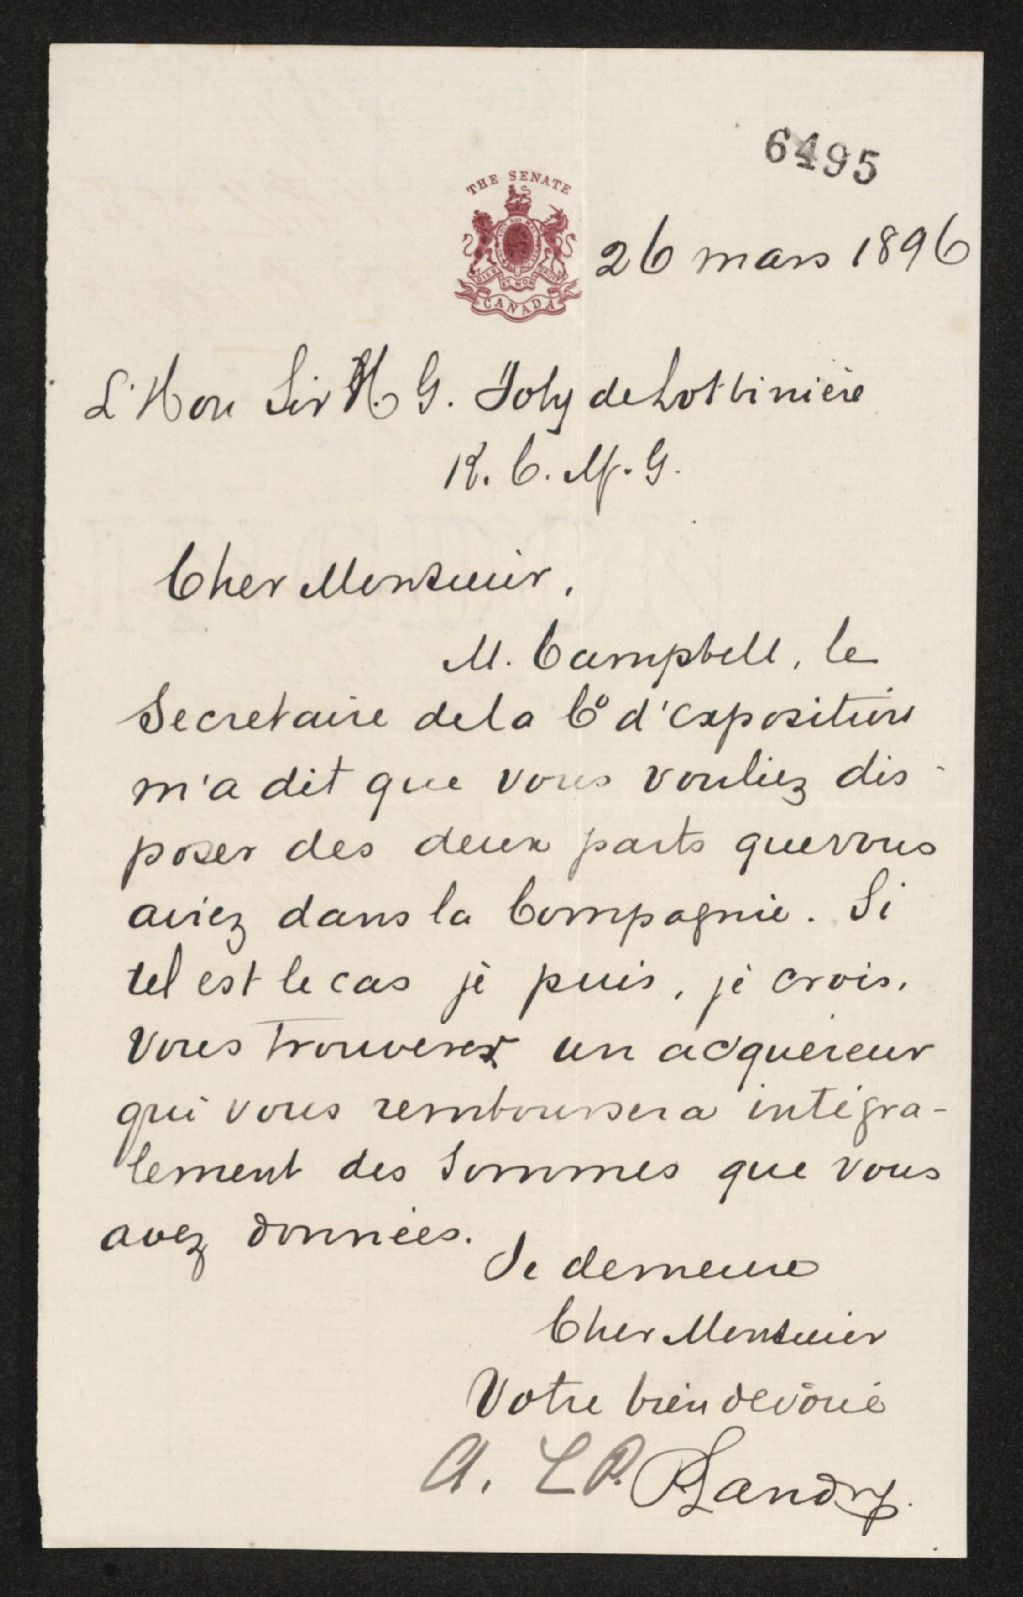 6495
THE SENATE
CANADA
26 mars 1896
L'Hon Sir H G. Joly de Lotbinière
K. C. M. G.
Cher Monsieur,
M. Campbell, le
Secretaire de la Co d'exposition
m'a dit que vous vouliez dis-
poser des deux parts que vous
aviez dans la Compagnie. Si
tel est le cas je puis, je crois,
vous trouver un acquéreur
qui vous remboursera intégra-
lement des sommes que vous
avez données.
Je demeure
Cher Monsieur
Votre bien dévoué
A. L P. Landry.